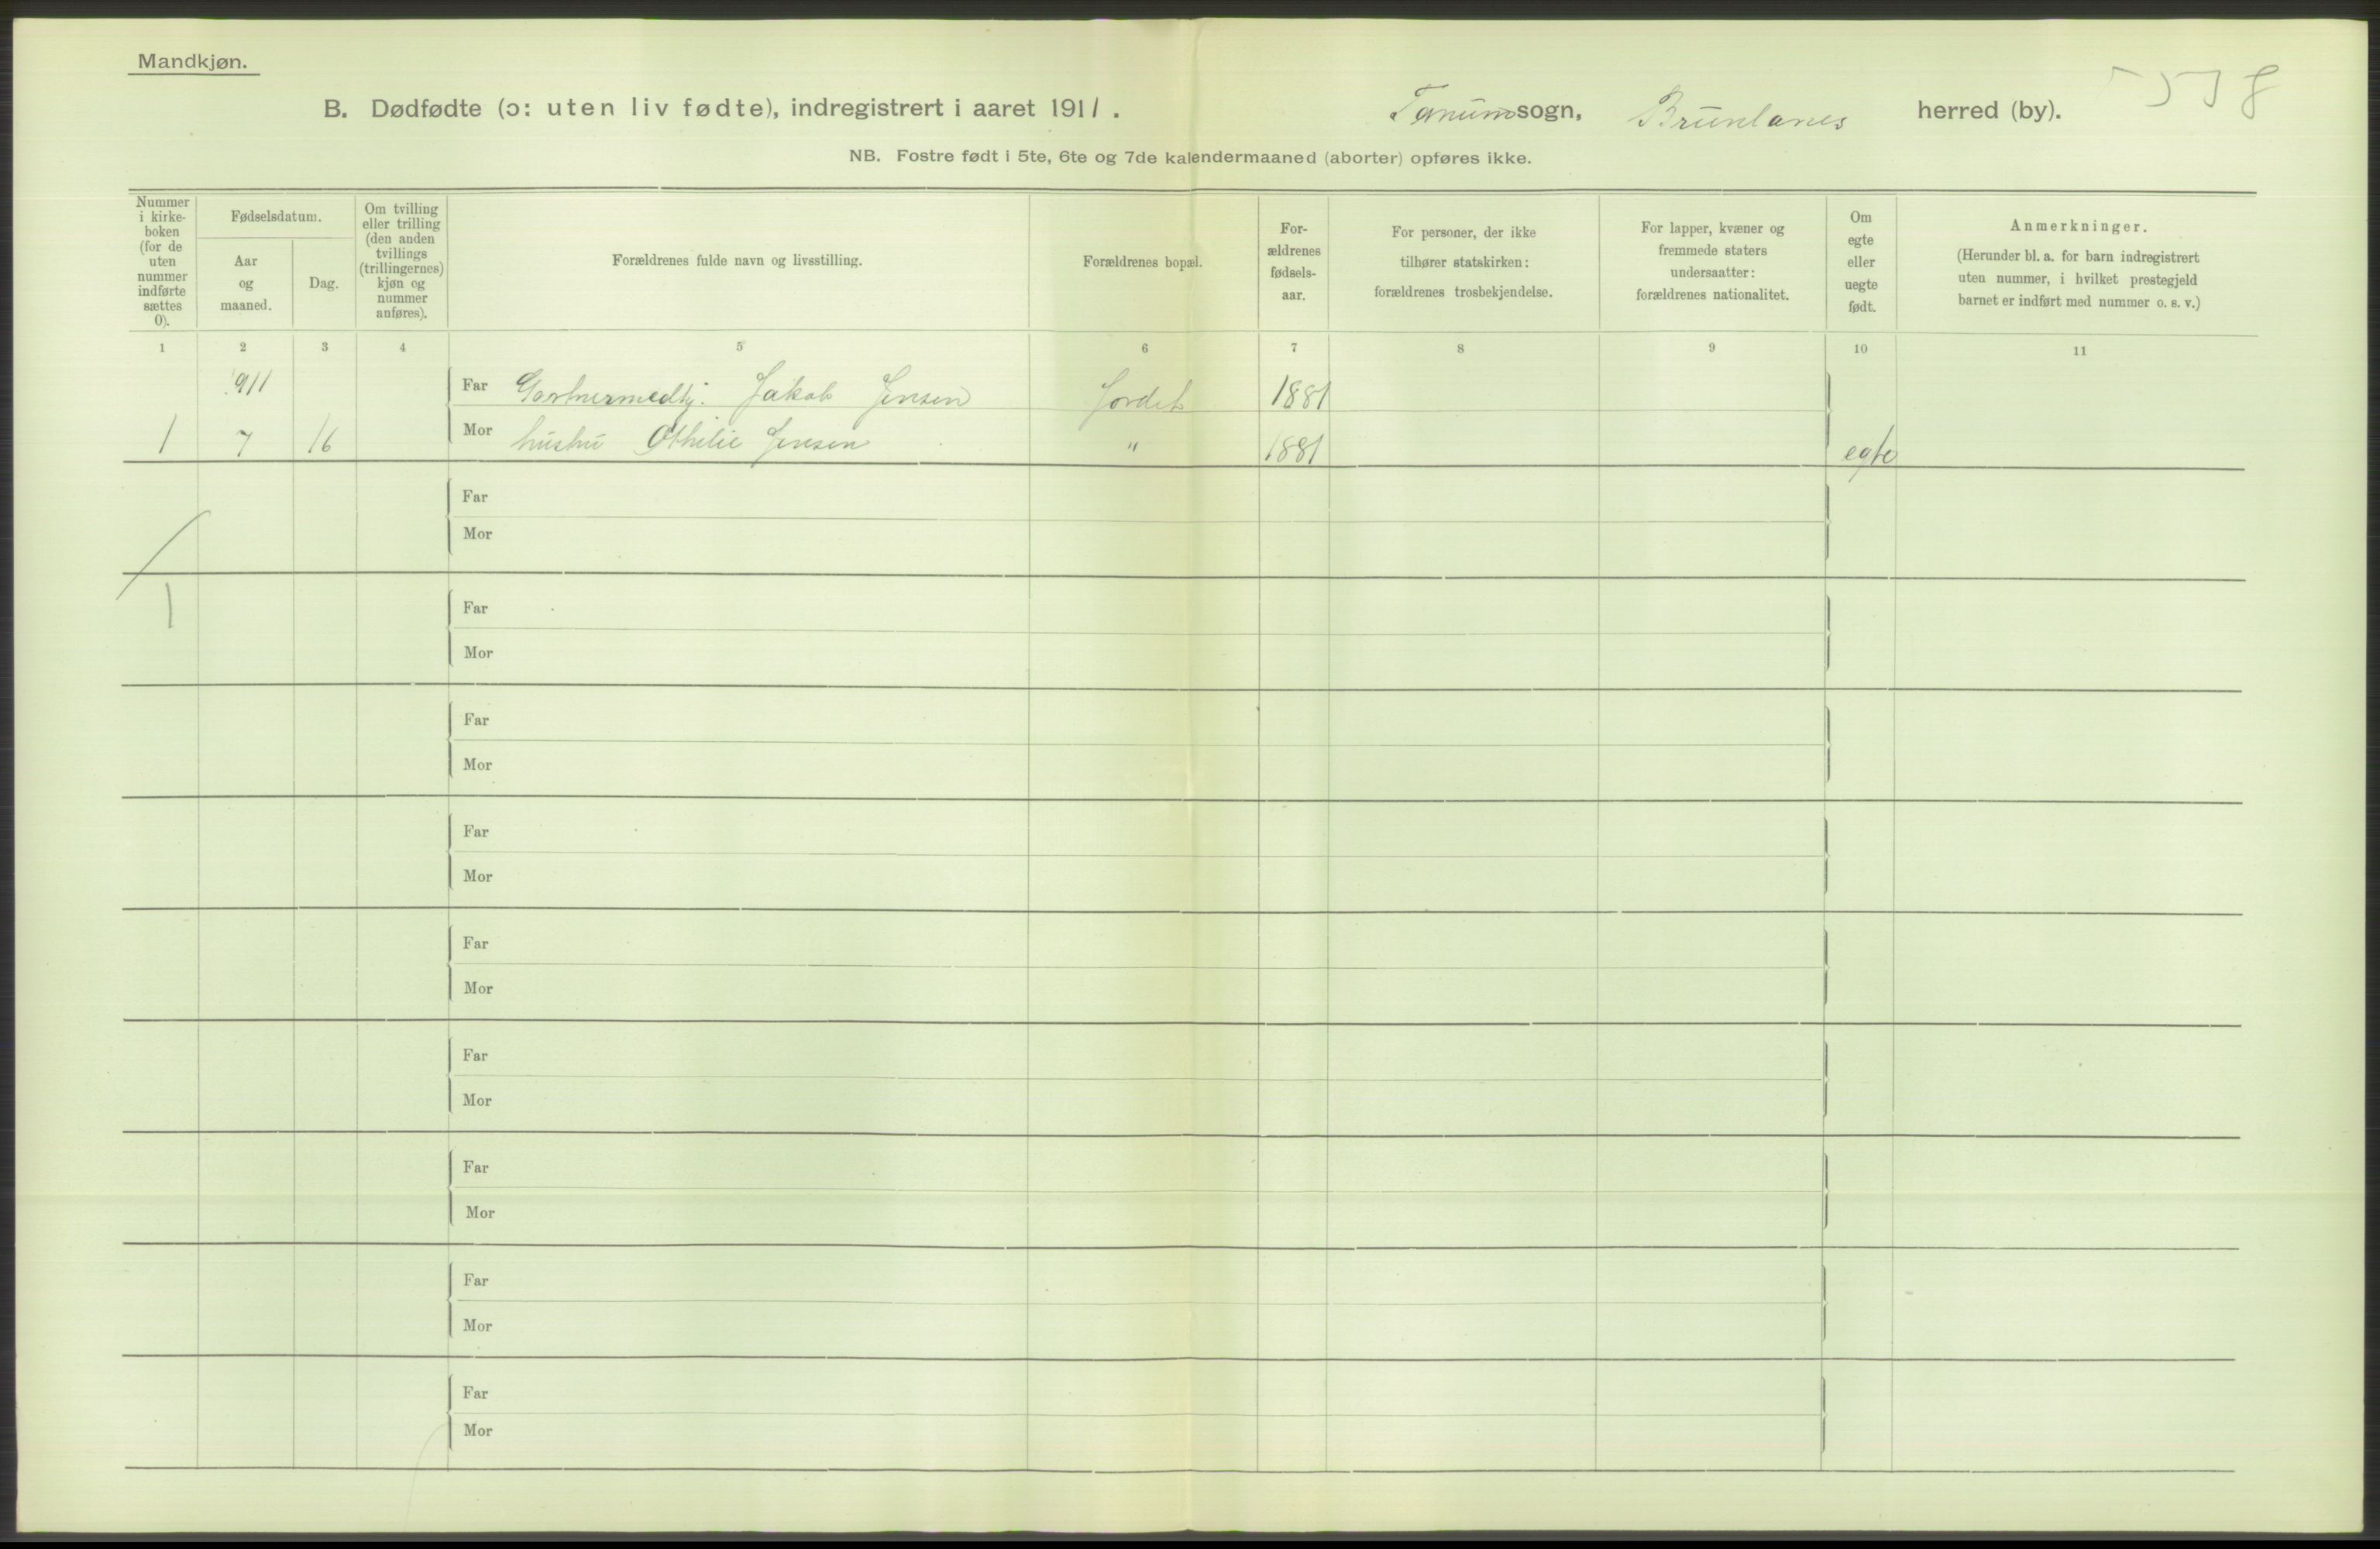 Mandkjøn.
B. Dødfødte (ɔ: uten liv fødte), indregistrert i aaret 1911.
Tanum sogn, Brunlanes herred (by).
NB. Fostre født i 5te, 6te og 7de kalendermaaned (aborter) opføres ikke.
Nummer
i kirke-
boken
(for de
uten
nummer
indførte
sættes
0).
Fødselsdatum.
Aar
og
maaned.
Dag.
Om tvilling
eller trilling
(den anden
tvillings
(trillingernes)
kjøn og
nummer
anføres).
Forældrenes fulde navn og livsstilling.
Forældrenes bopæl.
For-
ældrenes
fødsels-
aar.
For personer, der ikke
tilhører statskirken:
forældrenes trosbekjendelse.
For lapper, kvæner og
fremmede staters
undersaatter:
forældrenes nationalitet.
Om
egte
eller
uegte
født.
Anmerkninger.
(Herunder bl. a. for barn indregistrert
uten nummer, i hvilket prestegjeld
barnet er indført med nummer o. s. v.)
1 2 3 4 5 6 7 8 9 10 11
911 Far Gartnermedhj. Jakob Jensen Jordet 1881
1 7 16 Mor hustru Othilie Jensen " 1881 egte
Far
Mor
1
Far
Mor
Far
Mor
Far
Mor
Far
Mor
Far
Mor
Far
Mor
Far
Mor
Far
Mor